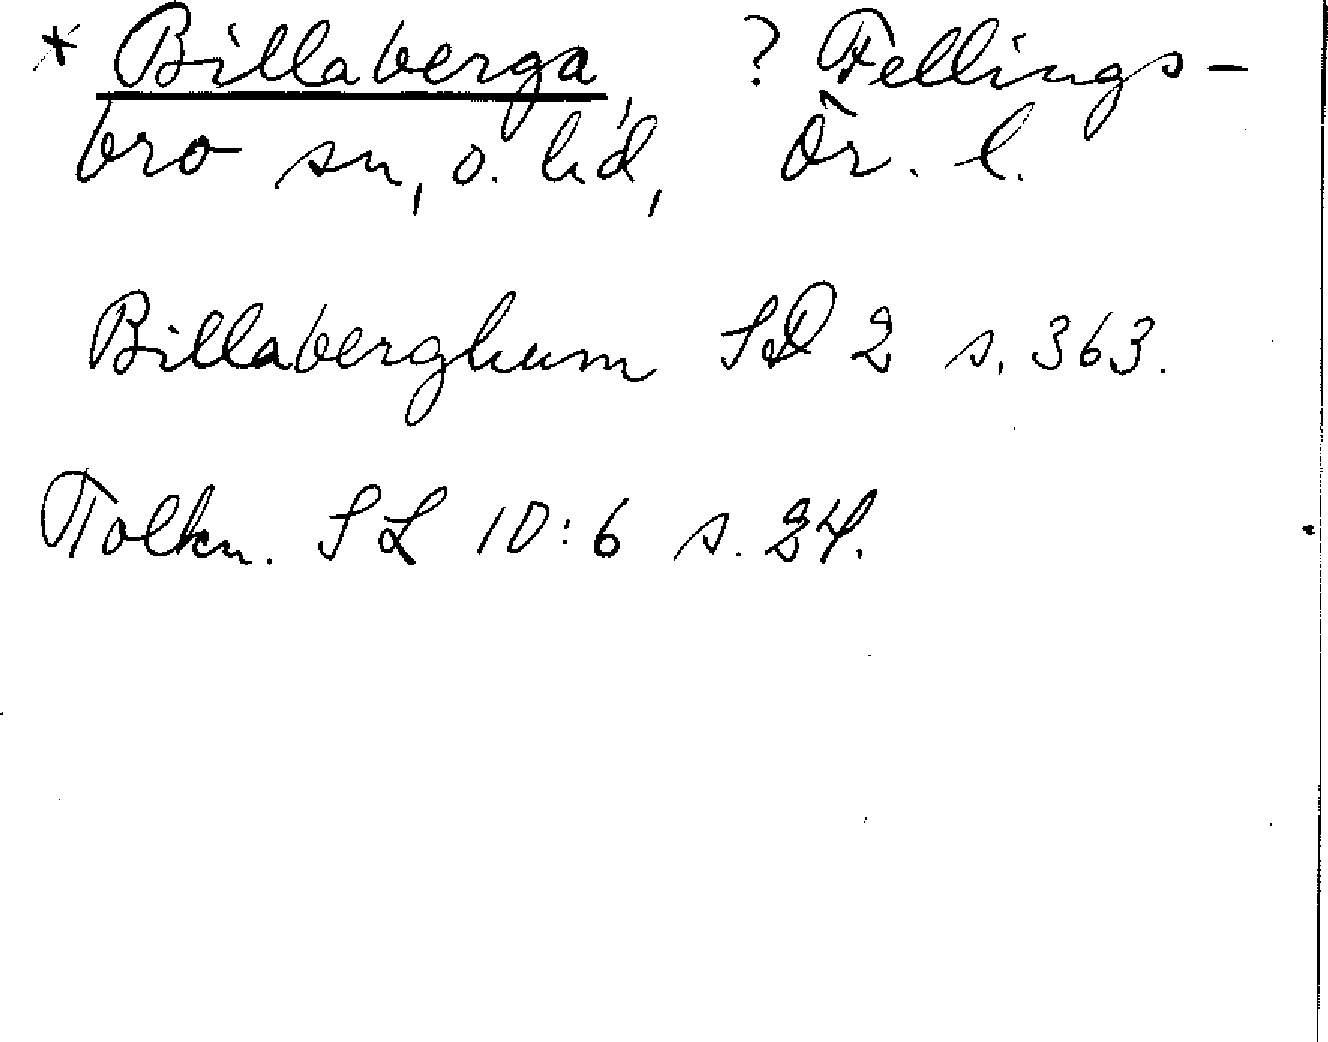 * Billaberga, ? Fellings-
bro sn, o. hd, Ör. l.
Billaberghum SD 2 s. 363.
Tolkn. SL 10:6 s. 24.